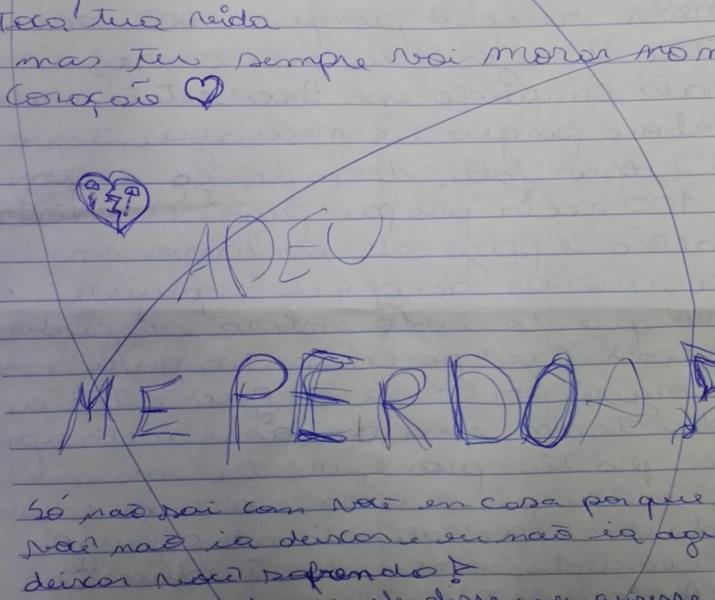 Toca tua vida
mas tu sempre vai morar no m
coração
ADEU
ME PERDOA
Só não sai com você en casa porque
você não ia deixar e eu não ia agu
deixar você sofrendo!